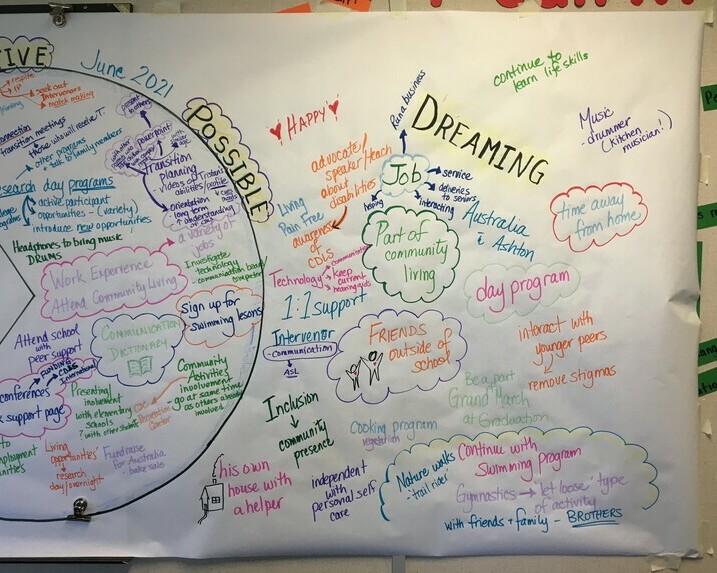 June 2021
POSSIBLE
respite
seek out
Intervenors
match making
transition meetings
those who will receive T.
other programs
talk to family members
day programs
active participant
opportunities - (variety)
introduce new opportunities
Headphones to bring music
DRUMS
present
others
PowerPoint
Transition
planning
- videos of Tristan's
abilities/profile
orientation
long term
↑ understanding
of CDLS
a variety of
jobs
Work Experience
Attend Community Living
Investigate
technology
- communication based/
computer
sign up for
swimming lessons
Attend school
with
peer support
COMMUNICATION
DICTIONARY
FUNDING
CDLS
International
conferences
support page
Presenting
involvement
with elementary
schools
? with other students
Community
Activities
involvement
- go at same time
as others already
involved.
Living
opportunities
research
day/overnight
Fundraise
For Australia
- bake sale
DREAMING
♥ HAPPY ♥
Run a business
continue to
learn life skills
Music
- drummer
(kitchen
musician!)
advocate
speaker/teach
about
disabilities
awareness
of
CDLS
Job
service
deliveries
to seniors
interacting
having
Living
Pain Free
Part of
community
living
Australia
Ashton
time away
from home
Technology
communication
keep
current
hearing aids
1:1 support
day program
Intervenor
- communication
ASL
FRIENDS
outside of
school
interact with
younger peers
remove stigmas
Be a part
Grand March
at Graduation
Inclusion
community
presence
Cooking program
vegetation
his own
house with
a helper
independent
with
personal self
care
Nature walks
- trail rider
Continue with
Swimming program
Gymnastics → 'let loose' type
of activity
with friends + family - BROTHERS